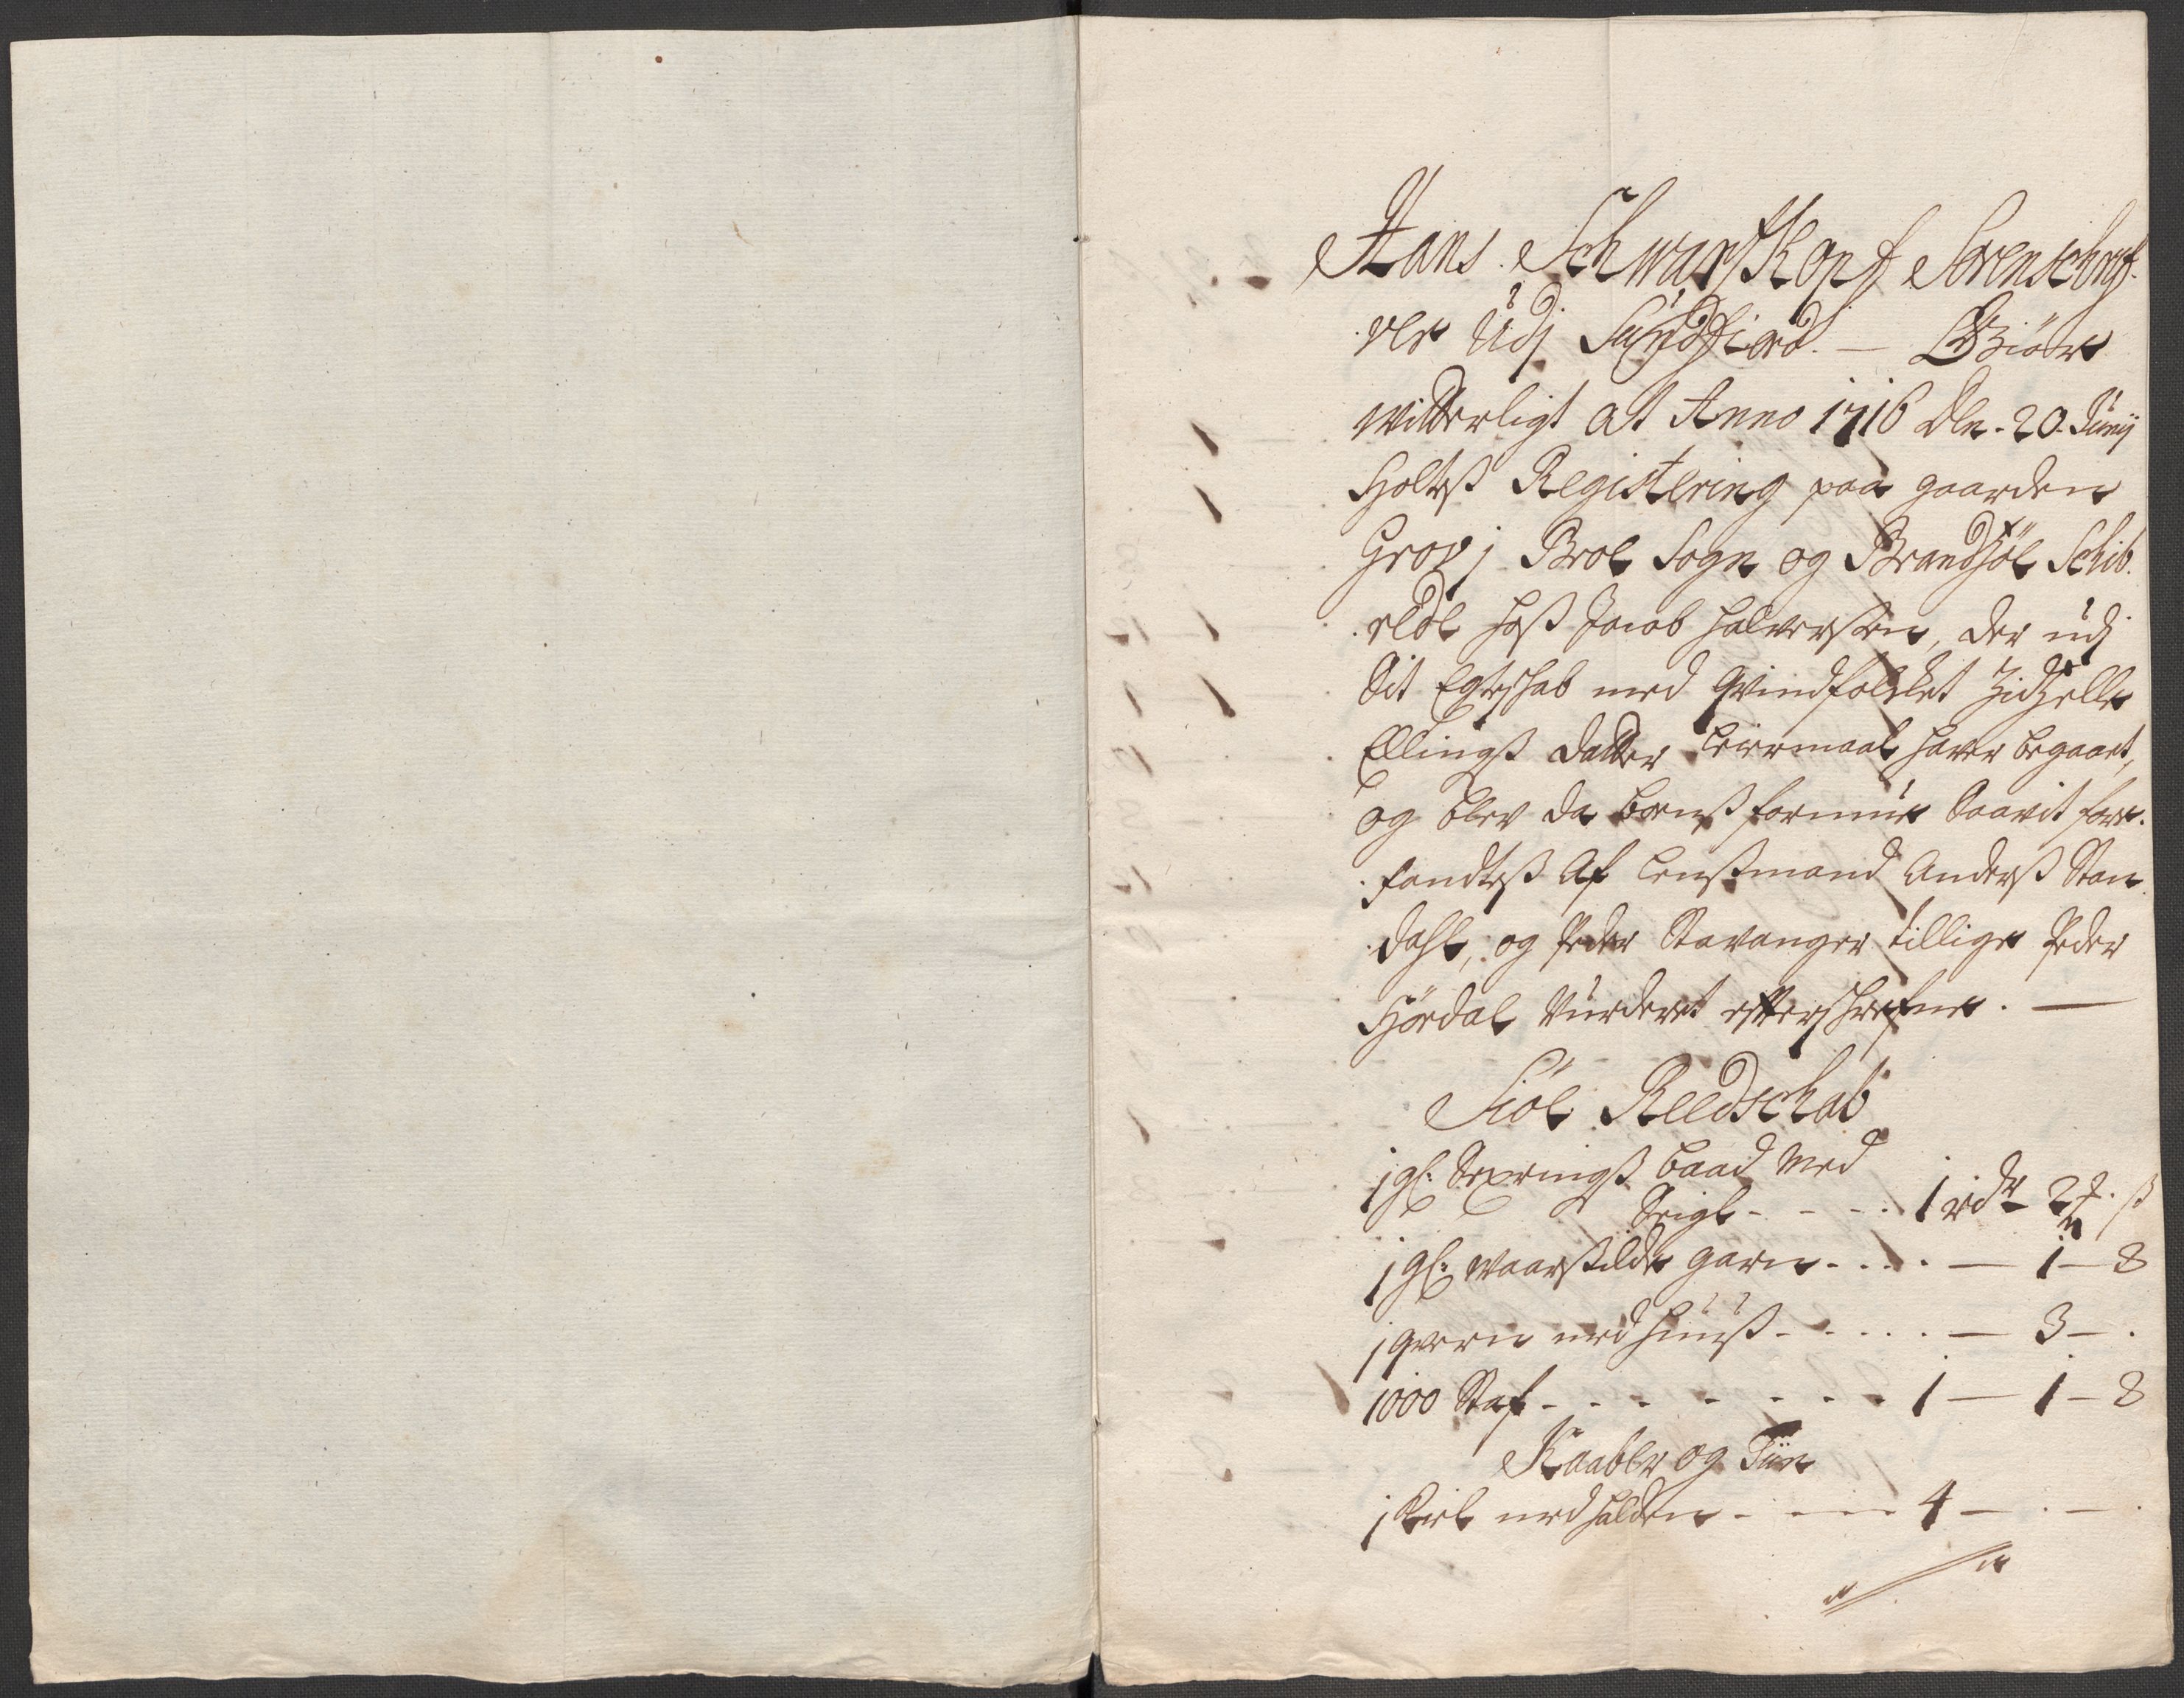 Hans Schwartskopf Sorenschrif-
ver Udj Sundfiord. — Giör
witterligt at Anno 1716 dln. 20. Junij
Holtes Registering paa gaarden
Grov j Brol Sogn og Brandsöl Schib.
redle hoß Jacob Halversen, der udj
Sit Egteschab med Qvindfolcket Zidzelle
Ellingß datter Leiermaal haver begaaet,
og blev da boenß formue Saavit fore-
fandteß af Lensmand Anderß Stan
dahl, og Peder Stavanger tillige Peder
Hordal Vurderet efterschrefne. —
Siöe Reedschab
1 gl: Sexringß baad med
Seigl - - - - 1 rdr 2 ß
1 gl: vaarsilde garn - . . . — 1 — 8
1 qvern med huuß - - . . . — 3 — .
1000 Staf - - - - - - - 1 — 1 — 8
Kaaber og Tiin
1 Kiel med halden - - - - 4 — . — .